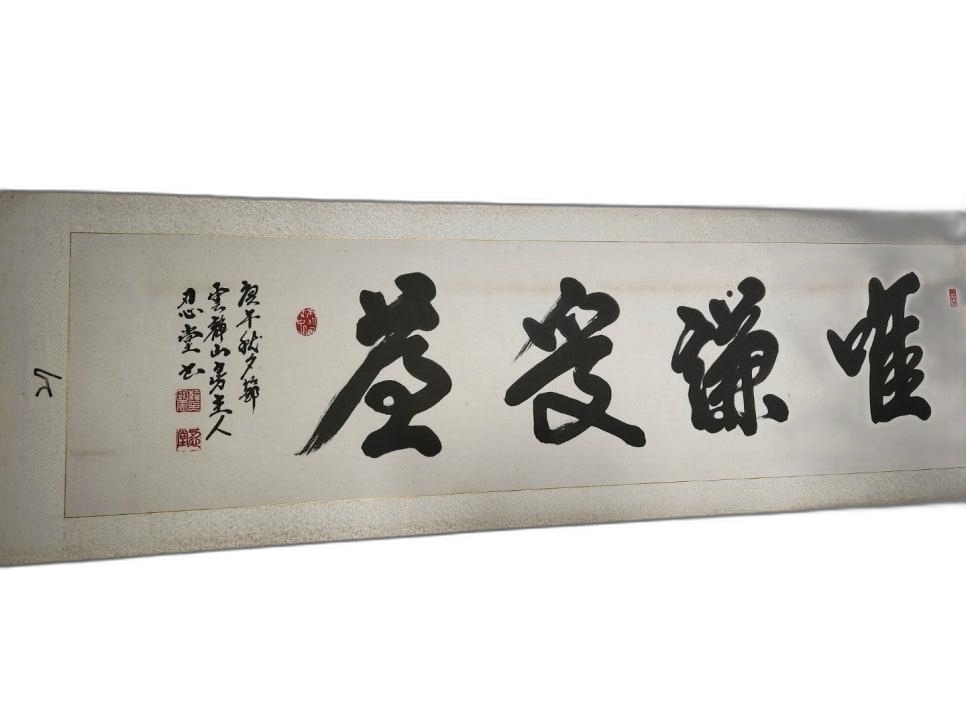 唯謙受益
庚午秋夕節
雲靜山房主人
忍堂書